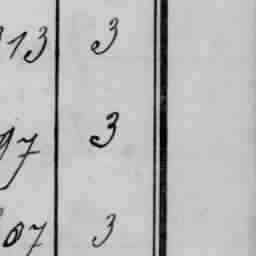 13 3
97 3
07 3